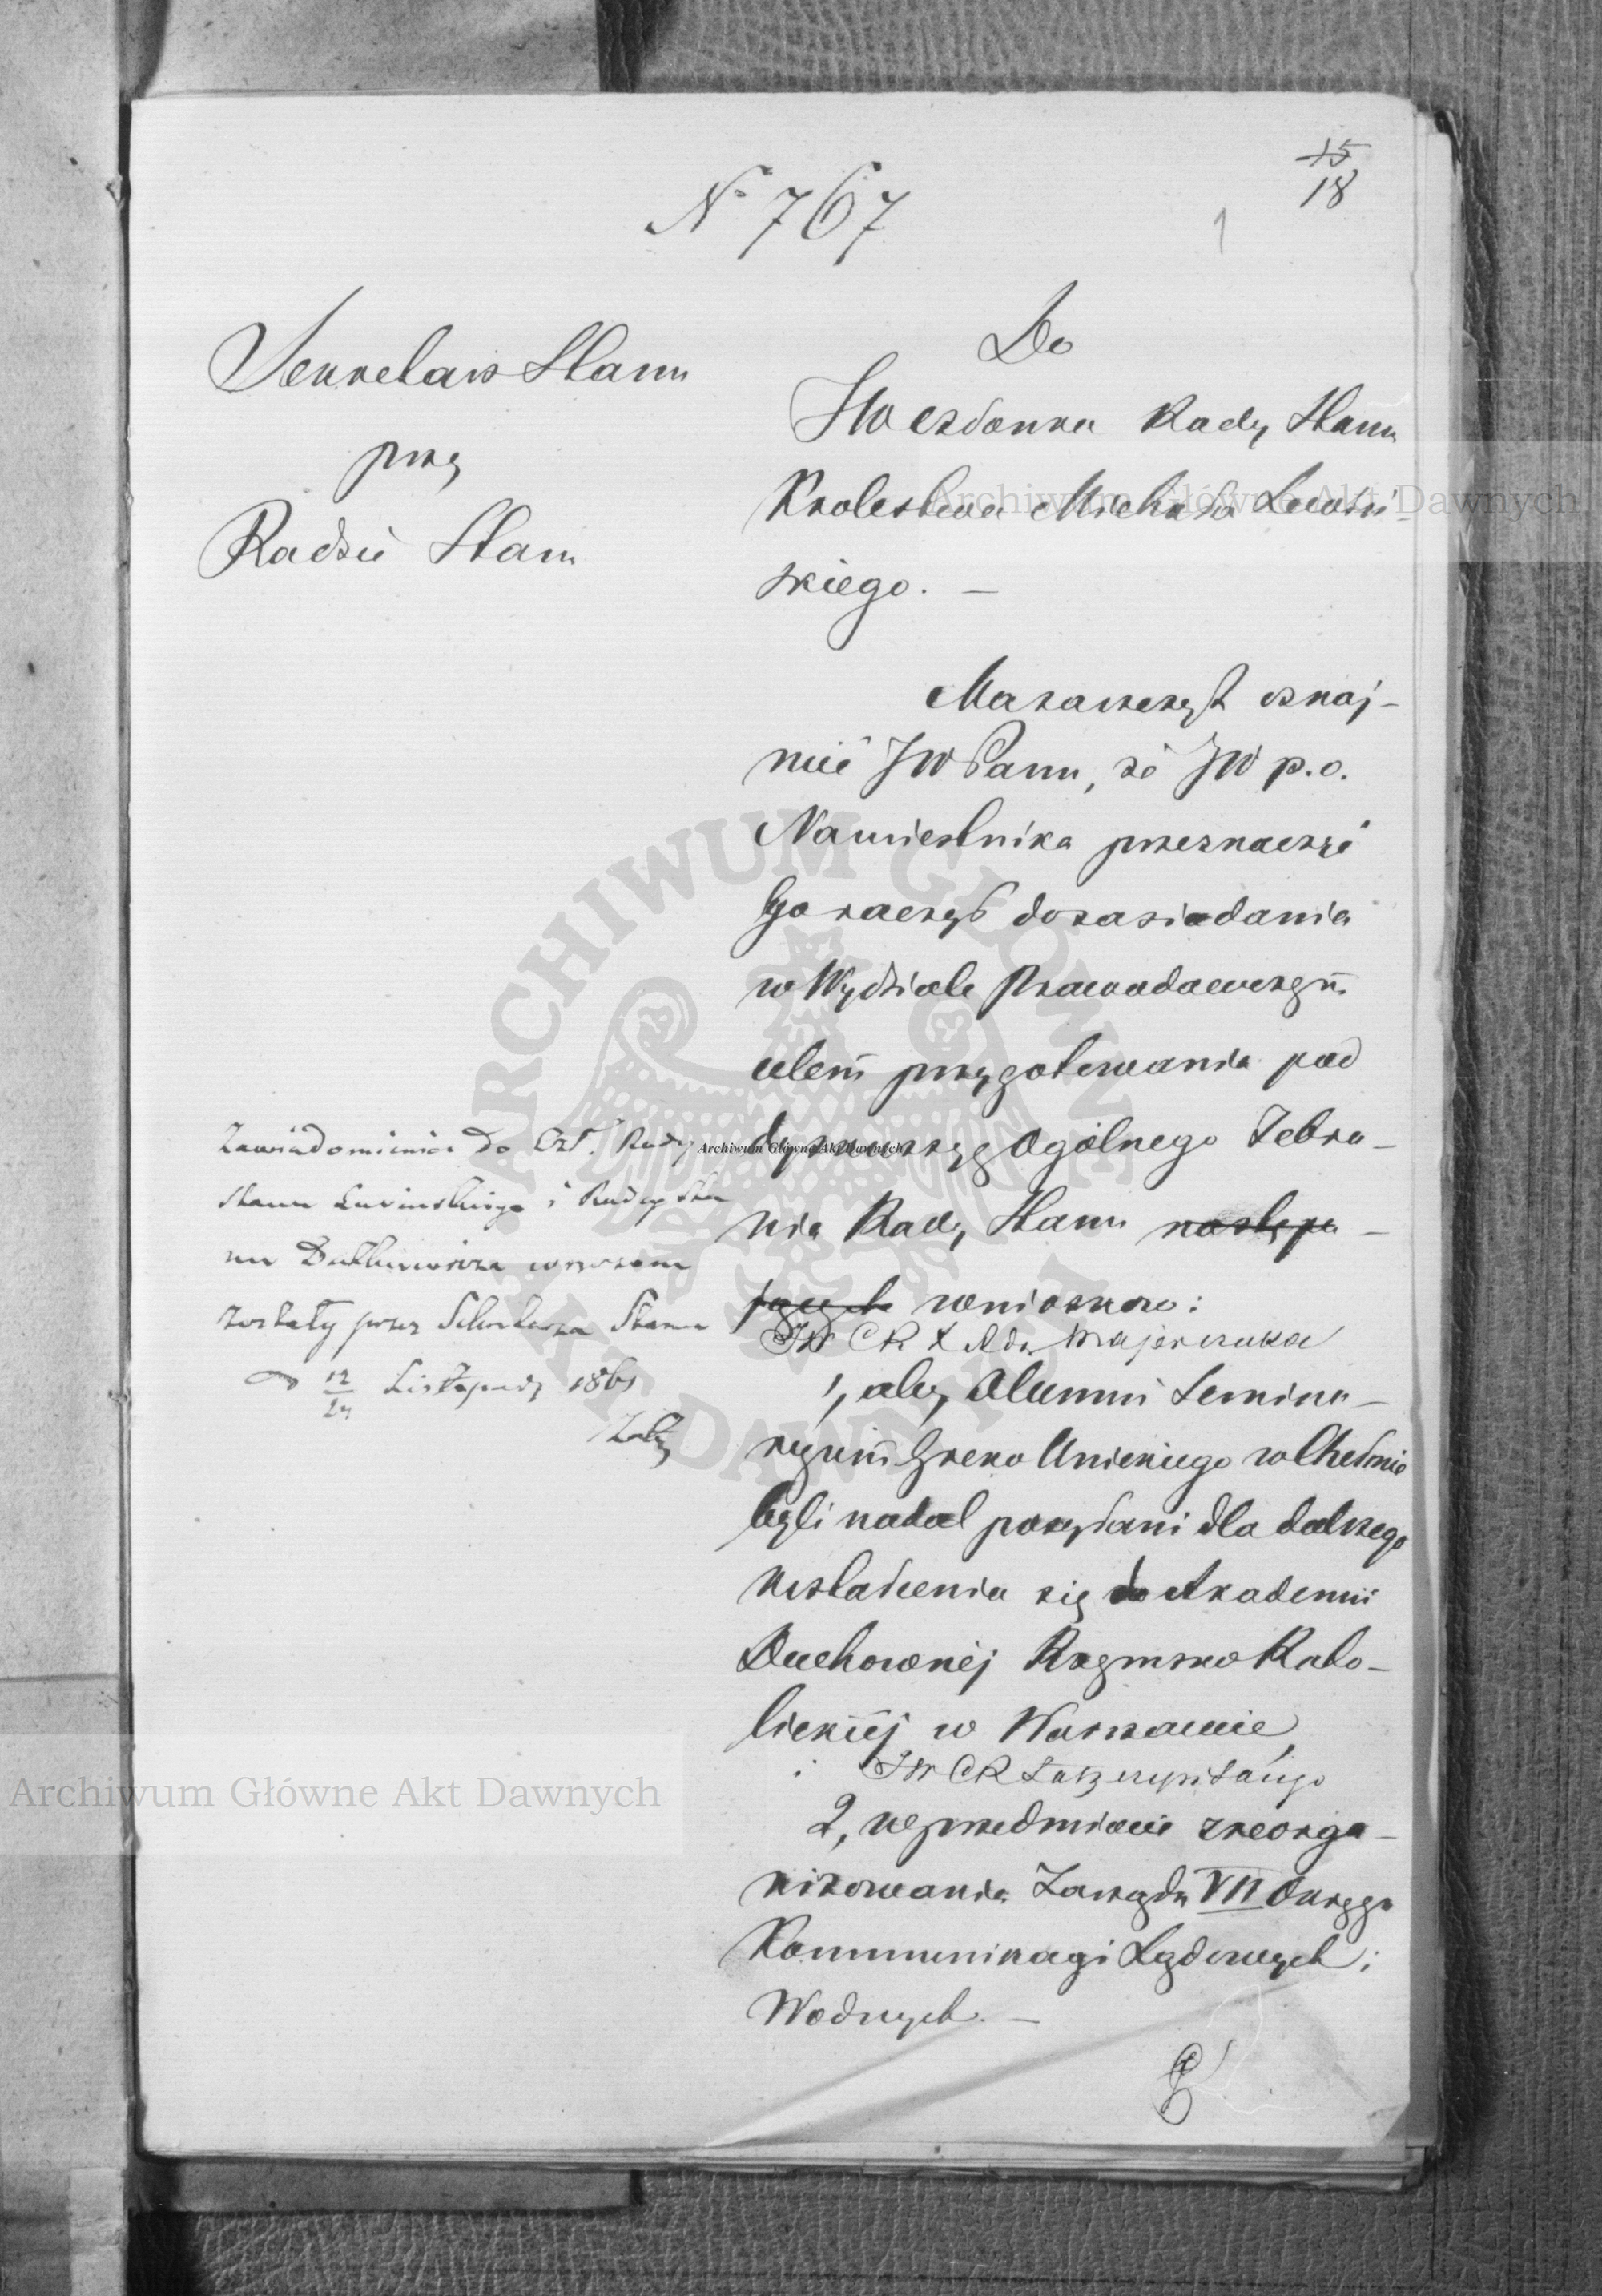 15
18
1
No 767
Sekretarz Stanu
przy
Radzie Stanu
Do
JW Członka Rady Stanu
Królestwa Michała Lewiń-
skiego. —
Mam zaszczyt oznaj-
mić JW Panu, że JW p.o.
Namiestnika przeznaczyć
Go raczył do zasiadania
w Wydziale Prawodawczym
celem przygotowania pod
dyskussyę Ogólnego Zebra-
nia Rady Stanu następu-
jących wniosków:
JW CR
1, aby Alumni Semina-
ryum Greko Unickiego w Chełmie
byli nadal posyłani dla dalszego
kształcenia się do Akademii
Duchownej Rzymsko Kato-
lickiej w Warszawie,
i JW CR
2, w przedmiocie zreorga-
nizowania Zarządu VII Okręgu
Kommunikacyi Lądowych i
Wodnych. —
Zawiadomienia do Czł. Rady
Stanu Lewińskiego i Radcy Sta
nu wręczone
zostały przez Sekretarza Stanu
d 12/24 Listopada 1861
Archiwum Główne Akt Dawnych
Archiwum Główne Akt Dawnych
Archiwum Główne Akt Dawnych
ARCHIWUM GŁÓWNE AKT DAWNYCH